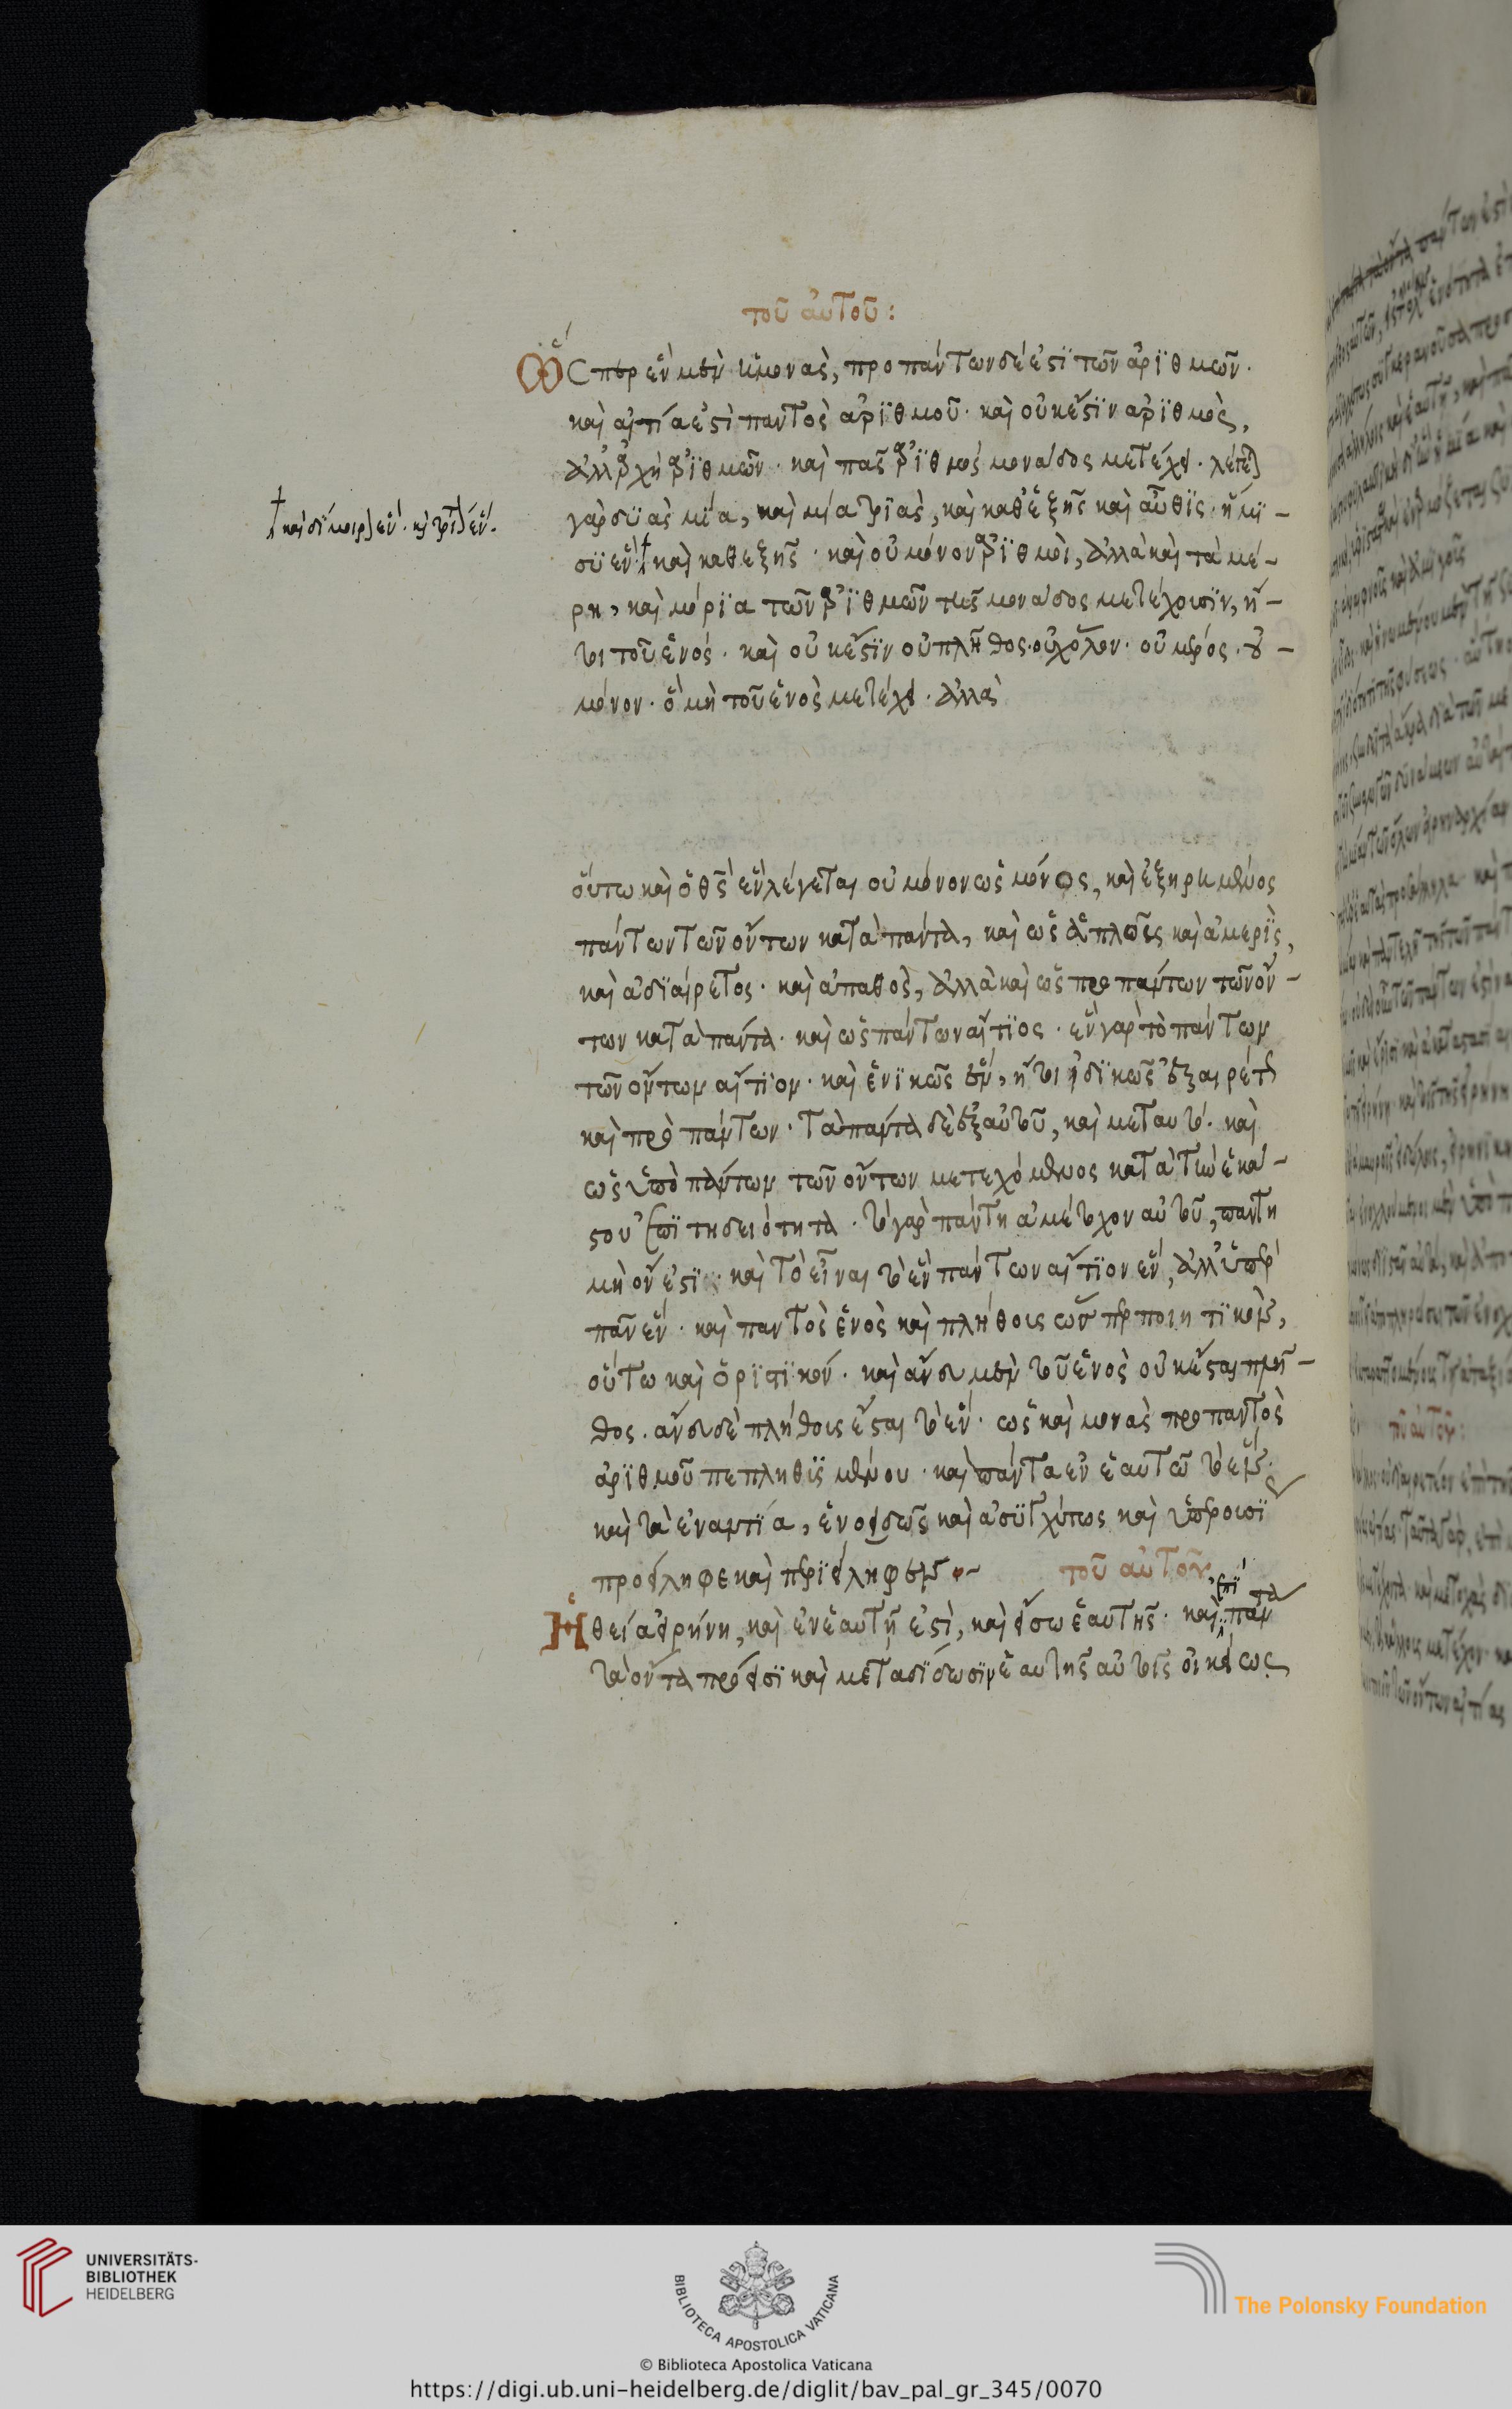 τοῦ αὐτοῦ:
Ὥσπερ ἓν μὲν ἡ μονὰς, προ πάντων δέ ἐστι τῶν ἀριθμῶν.
καὶ αἰτία ἐστὶ παντὸς ἀριθμοῦ. καὶ οὐκ ἔστιν ἀριθμὸς,
ἀλλ' ἀρχὴ ἀριθμῶν. καὶ πᾶς ἀριθμὸς μονάδος μετέχει. λέγεται
γὰρ δυὰς μία, καὶ μία τριὰς, καὶ καθ' ἑξῆς καὶ αὖθις. ἥμι-
συ ἓν καὶ καθεξῆς. καὶ οὐ μόνον ἀριθμοὶ, ἀλλὰ καὶ τὰ μέ-
ρη, καὶ μόρια τῶν ἀριθμῶν τῆς μονάδος μετέχουσιν, ἤ-
τοι τοῦ ἑνός. καὶ οὐκ ἔστιν οὐ πλῆθος. οὐχ ὅλον. οὐ μέρος. οὐ
μόνον. ὃ μὴ τοῦ ἑνὸς μετέχει. ἀλλὰ
† καὶ δίμοιρον ἕν. καὶ τρίτον ἕν.
οὕτω καὶ ὁ θεὸς ἓν λέγεται οὐ μόνον ὡς μόνος, καὶ ἐξῃρημένος
πάντων τῶν ὄντων κατὰ πάντα, καὶ ὡς ἁπλοῦς καὶ ἀμερὶς,
καὶ ἀδιαίρετος. καὶ ἀπαθὸς, ἀλλὰ καὶ ὡς προ πάντων τῶν ὄν-
των κατὰ πάντα. καὶ ὡς πάντων αἴτιος. ἓν γὰρ τὸ πάντων
τῶν ὄντων αἴτιον. καὶ ἑνικῶς ἕν, ἤτοι ἡδικῶς ἐξαιρέτως
καὶ πρὸ πάντων. τὰ πάντα δὲ ἐξ αὐτοῦ, καὶ μετ αυτό. καὶ
ὡς ὑπὸ πάντων τῶν ὄντων μετεχόμενος κατὰ τὴν ἑκά-
στου ἐπιτηδειότητα. τὸ γὰρ πάντη ἀμέτοχον αὐτοῦ, πάντη
μὴ ὄν ἐστι. καὶ τὸ εἶναι τὸ ἓν πάντων αἴτιον ἕν, ἀλλ' ὑπὲρ
πᾶν ἕν. καὶ παντὸς ἑνὸς καὶ πλήθους ὥσπερ ποιητικόν,
οὕτω καὶ ὁριστικόν. καὶ ἄνευ μὲν τοῦ ἑνὸς οὐκ ἔσται πλῆ-
θος. ἄνευ δὲ πλήθους ἔσται τὸ ἕν. ὡς καὶ μονὰς προ παντὸς
ἀριθμοῦ πεπληθισμένου. καὶ πάντα ἐν ἑαυτῶ τὸ ἕν.
καὶ τὰ ἐναντία, ἑνοειδῶς καὶ ἀσυγχύτως καὶ ὑπερουσί
προείληφε καὶ περιείληφεν
τοῦ αὐτοῦ
Ἡ θεία εἰρήνη, καὶ ἐν ἑαυτῆ ἐστὶ, καὶ εἴσω ἑαυτῆς. καὶ ἐπὶ πάντα
τὰ ὄντα πρόεισι καὶ μεταδίδωσιν ἑαυτῆς αὐτοῖς οἰκείως
UNIVERSITÄTS-
BIBLIOTHEK
HEIDELBERG
BIBLIOTECA APOSTOLICA VATICANA
The Polonsky Foundation
© Biblioteca Apostolica Vaticana
https://digi.ub.uni-heidelberg.de/diglit/bav_pal_gr_345/0070